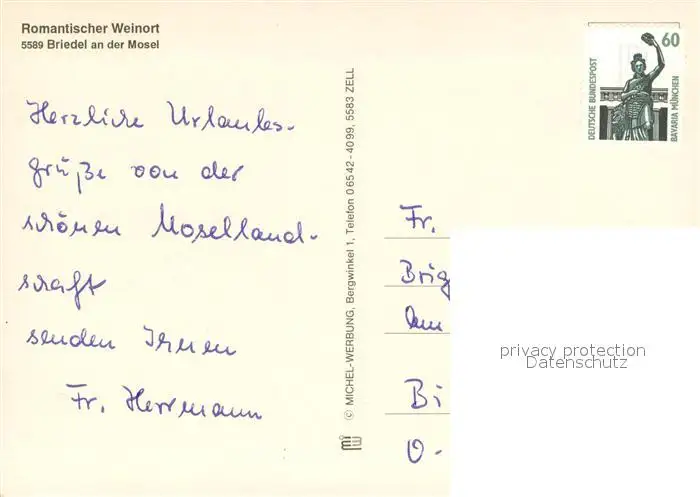 Romantischer Weinort
5589 Briedel an der Mosel
Herzliche Urlaubs-
grüße von der
schönen Moselland-
schaft
senden Ihnen
Fr. Herrmann
© MICHEL-WERBUNG, Bergwinkel 1, Telefon 06542-4099, 5583 ZELL
60
DEUTSCHE BUNDESPOST
BAVARIA MÜNCHEN
Fr.
Brig
Am
Bi
O-
privacy protection
Datenschutz